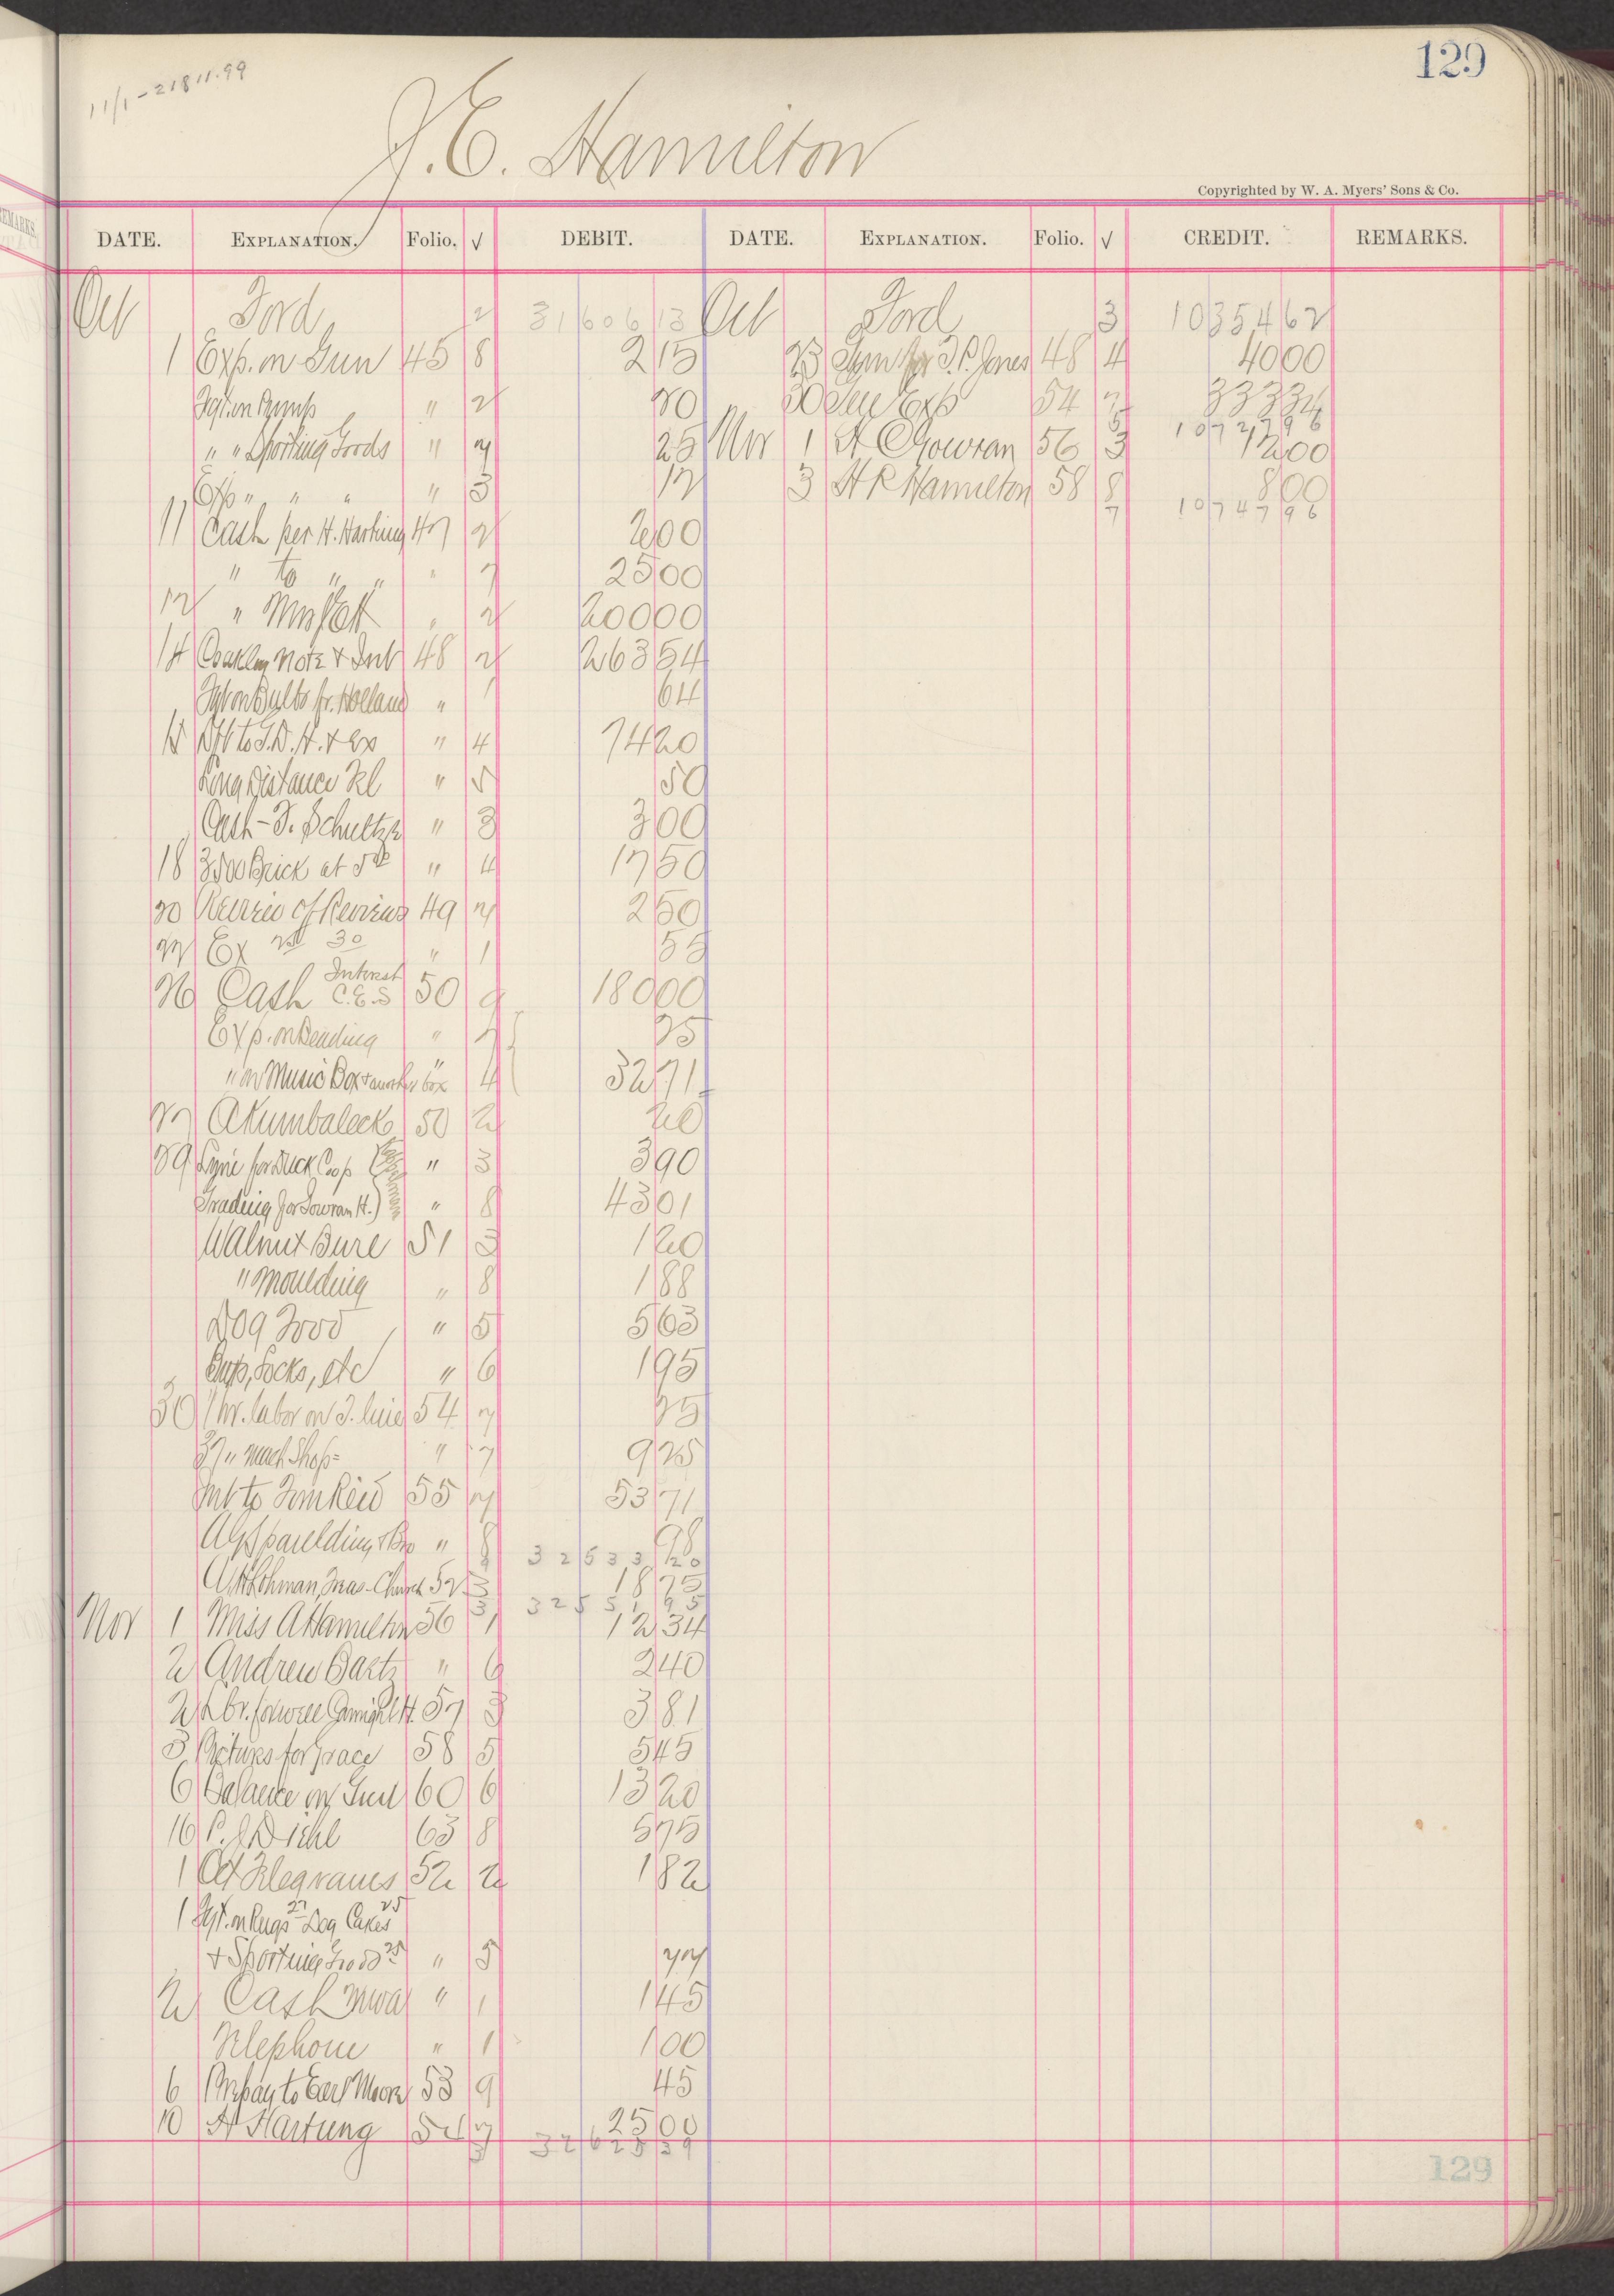 129
11/1 - 21811.99
J. E. Hamilton
Copyrighted by W. A. Myers' Sons & Co.
DATE. EXPLANATION. Folio. √ DEBIT. DATE. EXPLANATION. Folio. √ CREDIT. REMARKS.
Oct Ford 2 31606 13 Oct Ford 3 10354 62
1 Exp. on Gun 45 8 2 15 23 J. P. Jones 48 4 40 00
" 2 30 Exp 54 7 333 34
5 10727 96
" " Sporting Goods " 7 25 Nov 1 A C Gowran 56 3 12 00
Exp " " " " 3 12 3 H R Hamilton 58 8 8 00
7 10747 96
11 Cash per H. Hartung 47 2 2 00
" to " " " 7 25 00
12 " " 2 200 00
14 Note & Int 48 2 263 54
Bulbs fr. Holland " 1 64
& Ex " 4 74 20
Long Distance Tel " 5 50
Cash - F. Schultze " 3 3 00
18 3500 Brick at 5 " 4 17 50
20 Review of Reviews 49 7 2 50
22 Ex 30 " 1 55
26 Cash Interest C.E.S 50 9 180 00
Exp. on " 7 25
" on Music Box & another box " 4 32 71
27 50 2 20
29 for Duck Coop " 3 3 90
Grading for Gowran H.) " 8 43 01
Walnut 51 3 1 20
" Moulding " 8 1 88
Dog Food " 5 5 63
Locks, etc " 6 1 95
30 1 hr. labor on 54 7 25
37 " Mach Shop " 7 9 25
Int to 55 7 53 71
A G Spaulding & Bro " 8 98
32533 20
Lohman, Church 52 3 18 75
3 32551 95
Nov 1 Miss A Hamilton 56 1 12 34
2 Andrew Bartz " 6 2 40
2 57 3 3 81
3 Pictures for Grace 58 5 5 45
6 Balance on Gun 60 6 13 20
16 P. J Diehl 63 8 5 75
1 Oct Telegrams 52 2 1 82
1 on Rugs 27 Dog Cakes 25
& Sporting Goods 25 " 5 77
2 Cash " 1 1 45
Telephone " 1 1 00
6 Prepay to Earl Moore 53 9 45
10 H Hartung 54 7 25 00
3 32625 39
129